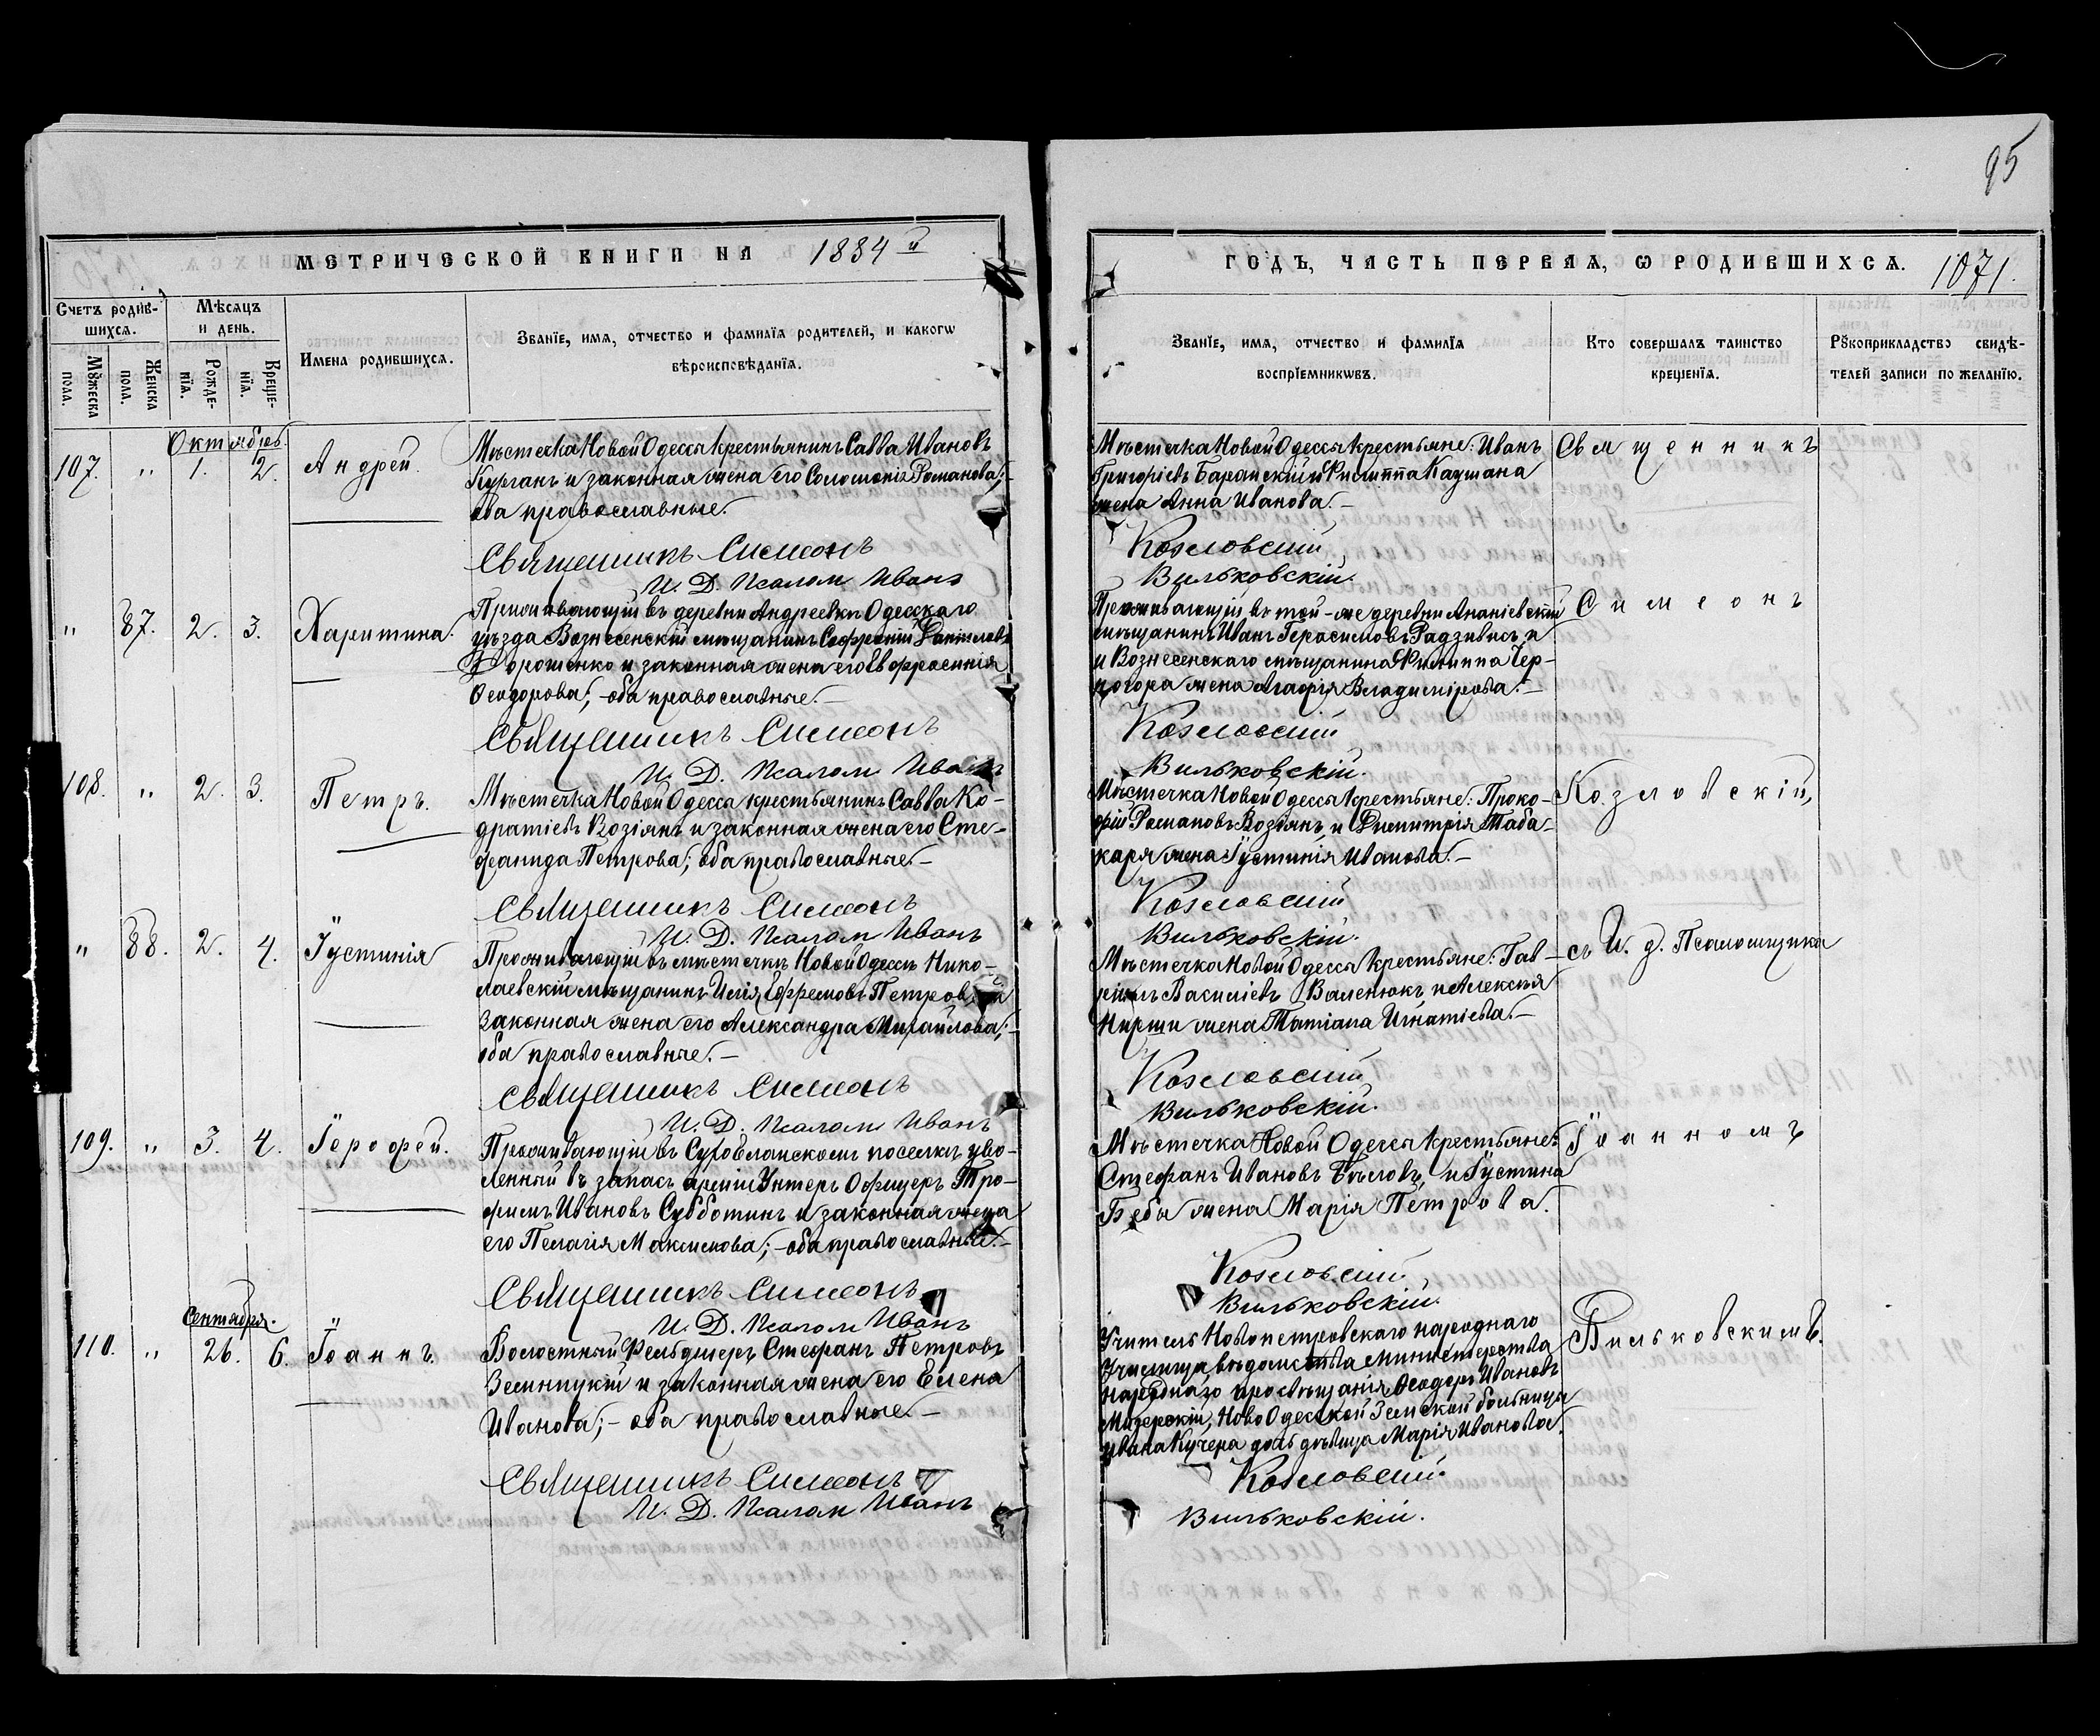 95
МЕТРИЧЕСКОЙ КНИГИ НА 1884 й
ГОДЪ, ЧАСТЬ ПЕРВАЯ, Ѡ РОДИВШИХСѦ. 1071.
Счетъ родив-
шихсѧ.
Мѣсяцъ
и день.
Мꙋжеска
пола.
Женска
пола.
Рожде-
нїя.
Креще-
нїя.
Имена родившихсѧ.
Званїе, имѧ, отчество и фамилїѧ родителей, и какогѡ
вѣроисповѣданїѧ.
Званїе, имѧ, отчество и фамилїѧ
воспрїемникѡвъ.
Кто совершалъ таинство
крещенїѧ.
Рꙋкоприкладство свидѣ-
телей записи по желанїю.
Октябрь
107. " 1. 2. Андрей.
Мѣстечка Новой Одессы крестьянинъ Савва Ивановъ
Курганъ и законная жена его Соломонія Романова;
оба православные.
Священникъ Симеонъ
И. Д. Псалом Иванъ
Мѣстечка Новой Одессы крестьяне: Иванъ
Григоріевъ и Филиппа
жена Анна Иванова.
Козловскій
Вильковскій.
Священникъ
" 87. 2. 3. Харитина.
Проживающій въ деревни Андреевки Одесскаго
уѣзда Вознесенскій мѣщанинъ Софроній Даніиловъ
Дорошенко и законная жена его Евфросинія
Ѳеодорова; оба православные.
Священникъ Симеонъ
И. Д. Псалом Иванъ
Проживающій въ той-же деревни Ананіевскій
мѣщанинъ Иванъ Герасимовъ
и Вознесенскаго мѣщанина Филиппа Чер-
ногора жена Агафія Владимірова.
Козловскій
Вильковскій.
Симеонъ
108. " 2. 3. Петръ.
Мѣстечка Новой Одессы крестьянинъ Савва Ко-
дратіевъ Возіянъ и законная жена его Сте-
фанида Петрова; оба православные
Священникъ Симеонъ
И. Д. Псалом Иванъ
Мѣстечка Новой Одессы крестьяне: Проко-
фій Романовъ Возіянъ, и Димитрія Таба-
каря жена Іустинія Иванова.
Козловскій
Вильковскій.
Козловскій,
" 88. 2. 4. Іустинія
Проживающій въ мѣстечкѣ Новой Одессѣ Нико-
лаевскій мѣщанинъ Илія Ефремовъ Петров и
законная жена его Александра Михайлова;
оба православные.
Священникъ Симеонъ
И. Д. Псалом Иванъ
Мѣстечка Новой Одессы крестьяне: Гав-
ріилъ Василіевъ Валенюкъ, и Алексѣя
Нирши жена Татіана Игнатіева.
Козловскій
Вильковскій.
съ И. д. Псаломщика
109. " 3. 4. Іерофей.
Проживающій въ поселкѣ уво-
ленный въ запасъ арміи Унтеръ Офицеръ Тро-
фимъ Ивановъ Субботинъ и законная жена
его Пелагія Максимова; оба православные.
Священникъ Симеонъ
И. Д. Псалом Иванъ
Мѣстечка Новой Одессы крестьяне:
Стефанъ Ивановъ Бѣловъ, и Іустина
Бебы жена Марія Петрова.
Козловскій
Вильковскій.
Іоанномъ
Сентября.
110. " 26. 6. Іоаннъ.
Волостный Фельдшеръ Стефанъ Петровъ
и законная жена его Елена
Иванова; оба православные
Священникъ Симеонъ
И. Д. Псалом Иванъ
Учитель Новопетровскаго народнаго
Училища вѣдомства Министерства
народнаго просвѣщанія Ѳеодоръ Ивановъ
Ново Одесской Земской больницы
Ивана Кучера дочь дѣвица Марія Иванова.
Козловскій
Вильковскій.
Вильковскимъ.